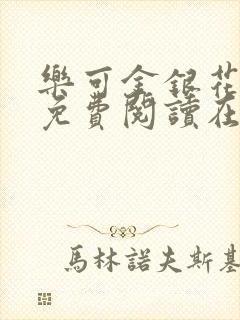 樂可金銀花
免費閱讀在
馬林諾夫斯基